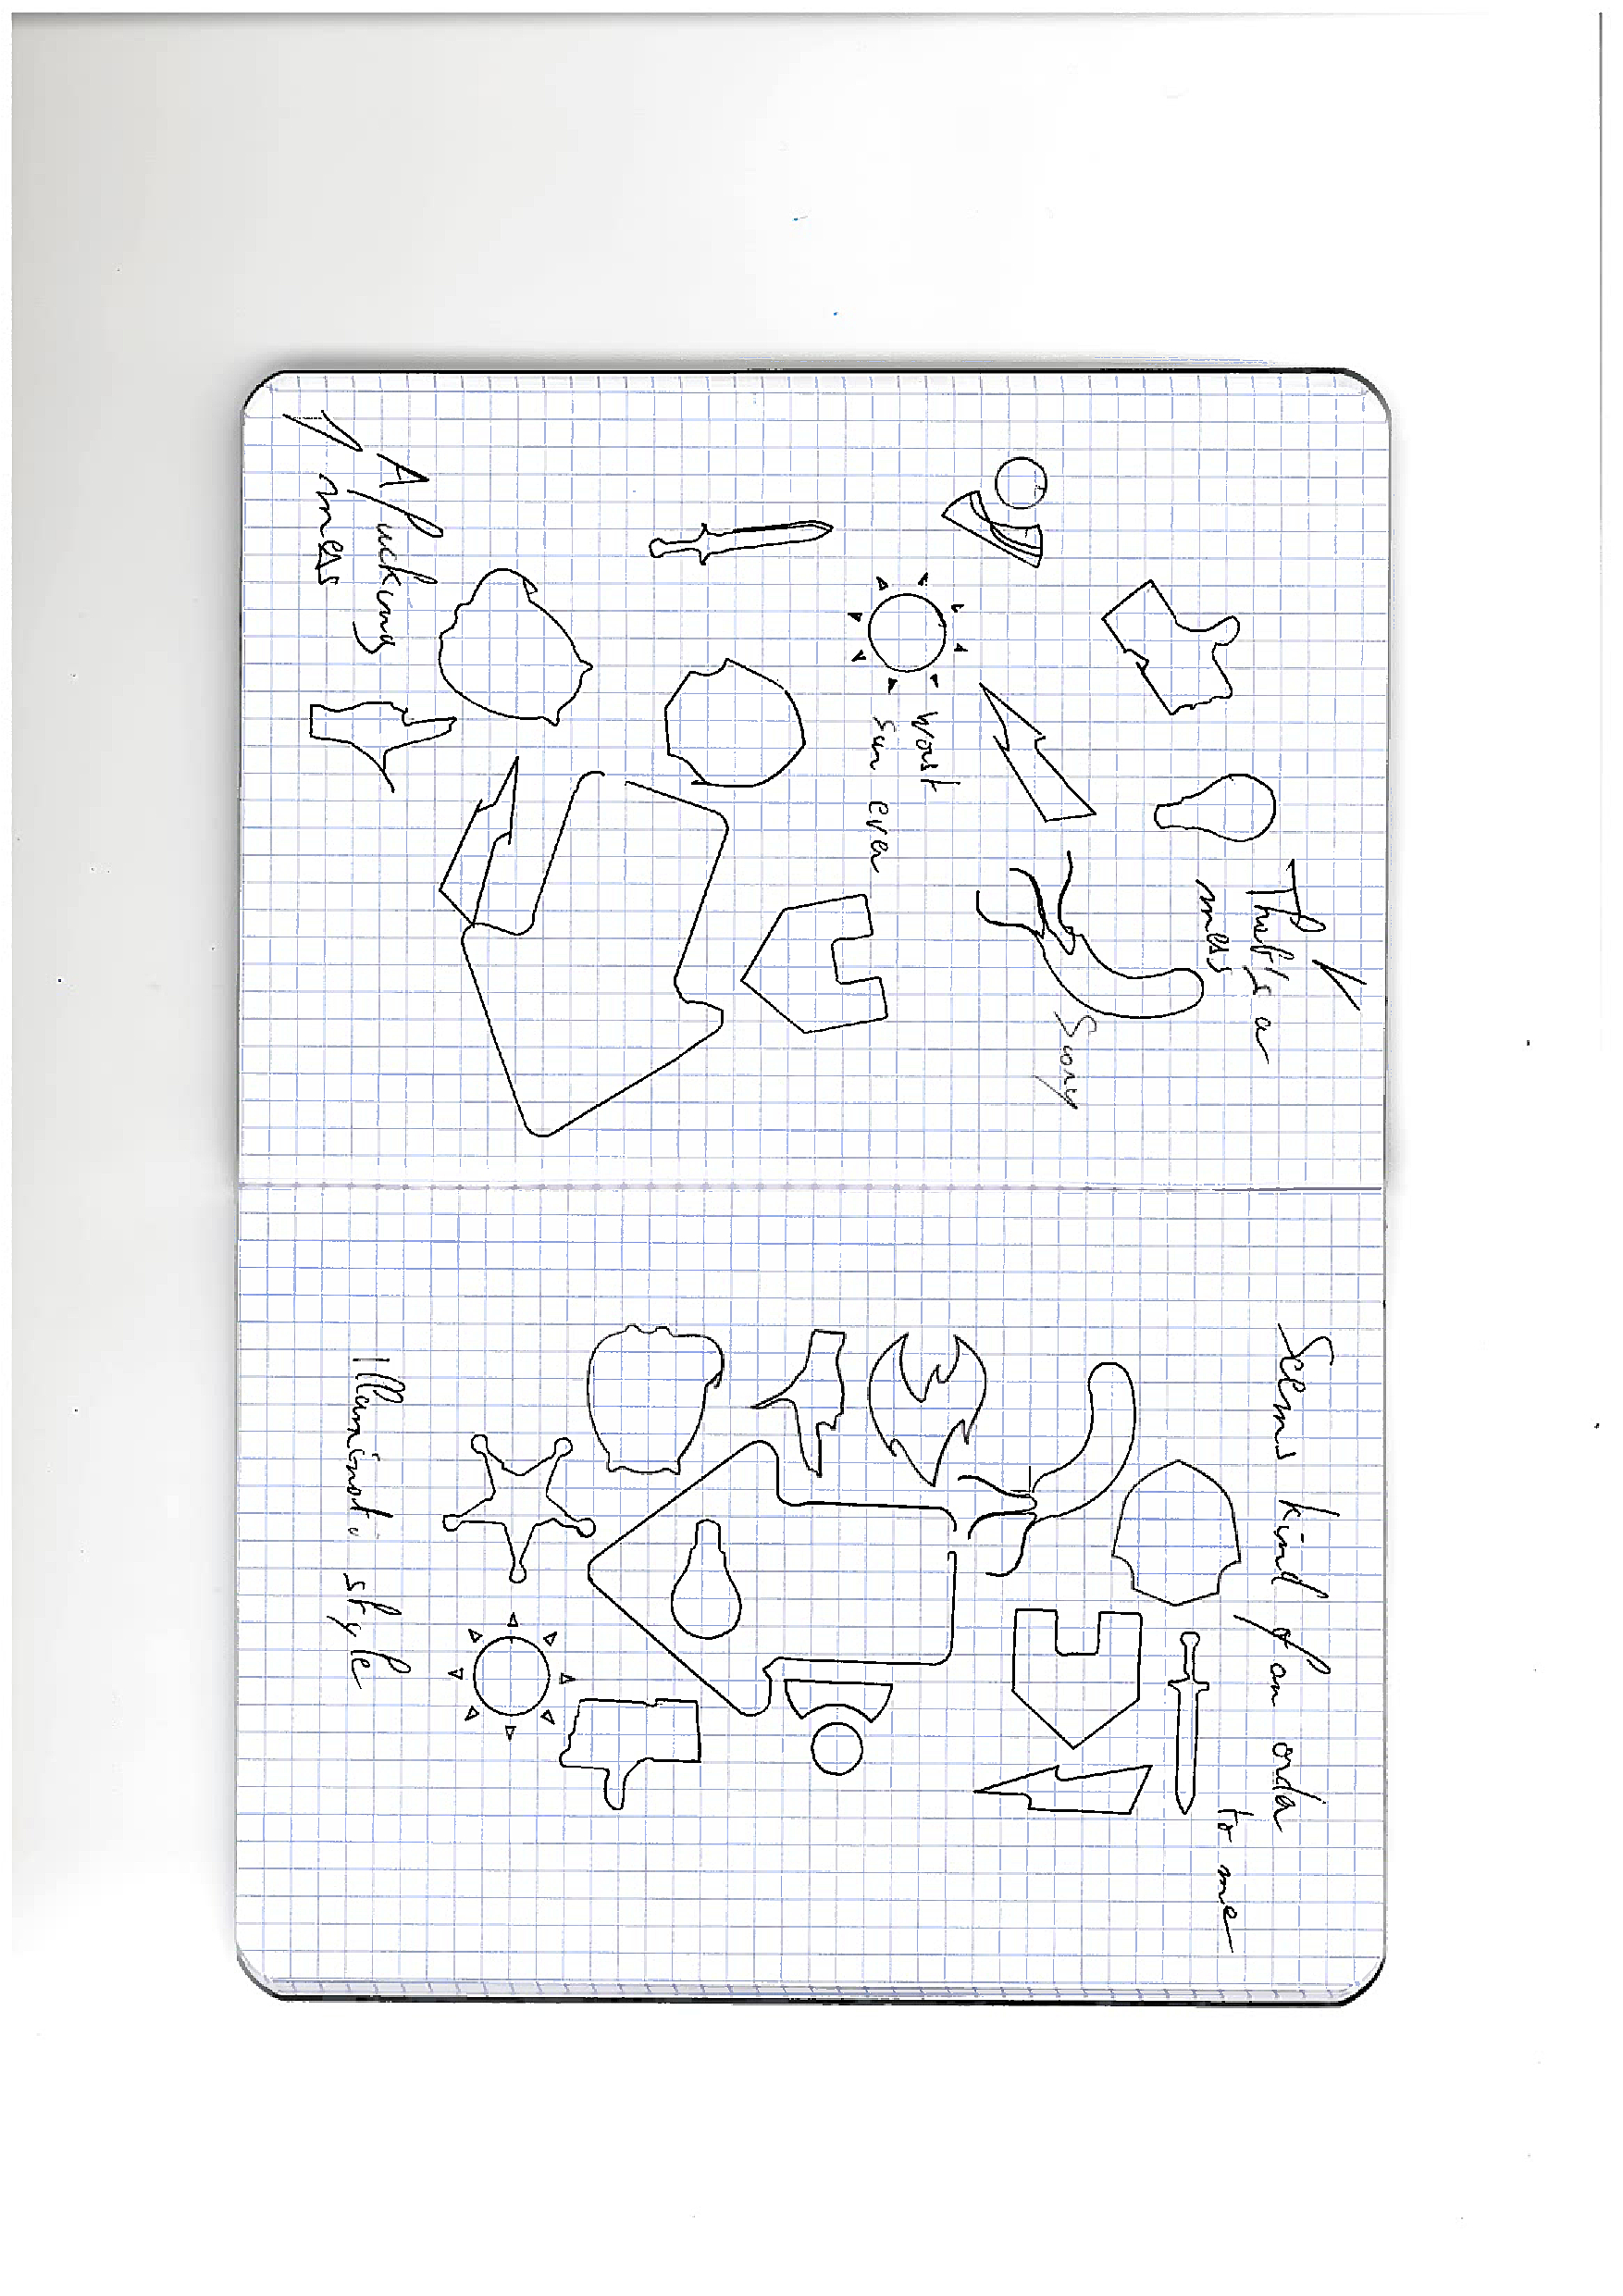 That's a
mess
Worst
sun ever
A fucking
mess
Seems kind of an order
to me
Illuminati style